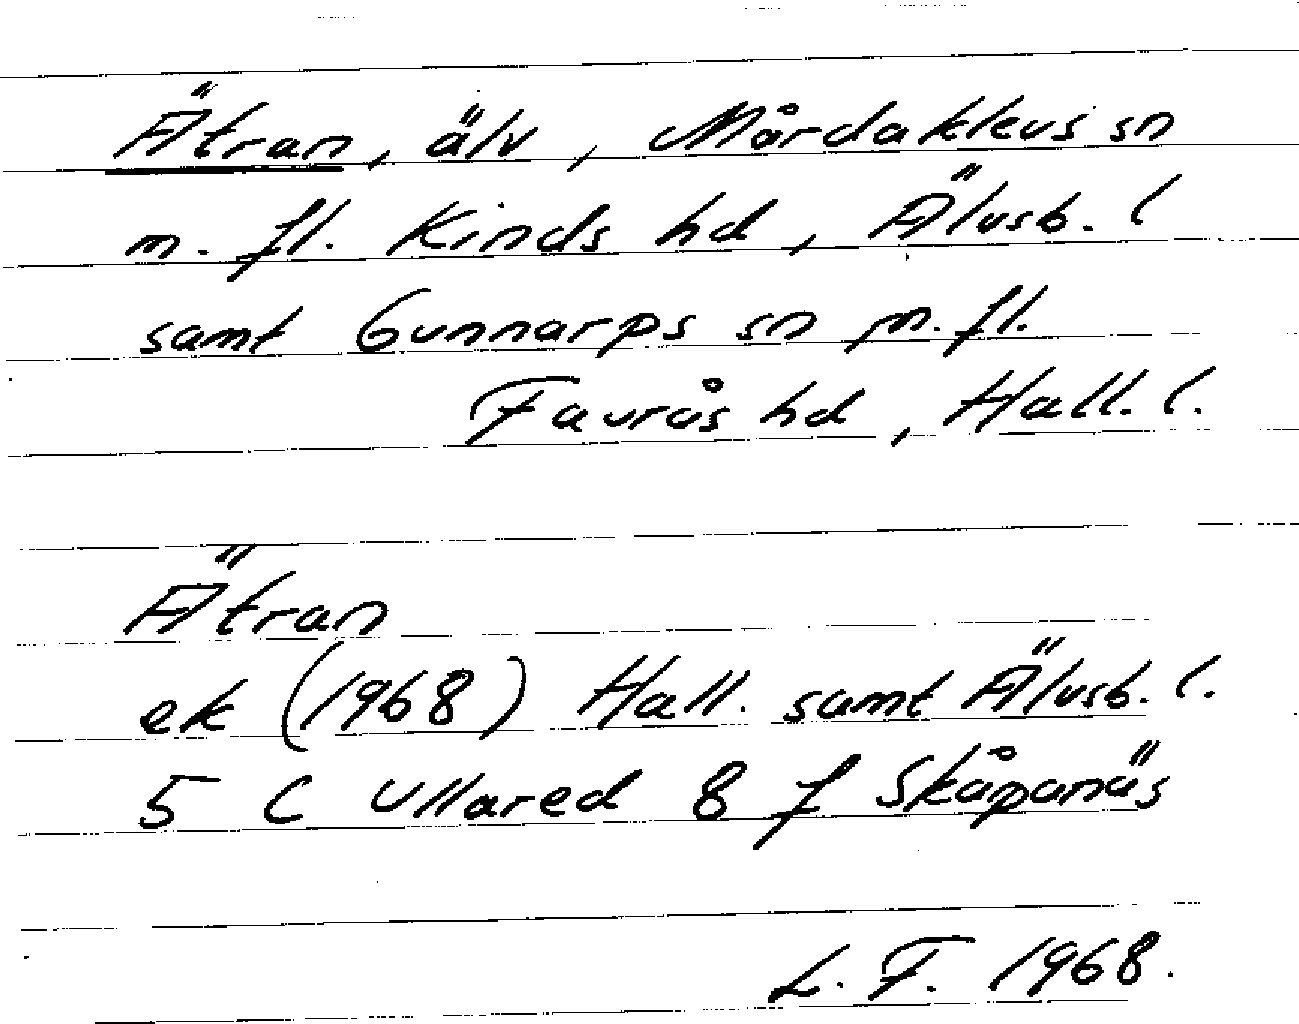 Ätran, älv, Mårdaklevs sn
m. fl. Kinds hd, Älvsb. l
samt Gunnarps sn m. fl.
Faurås hd, Hall. l.
Ätran
ek (1968) Hall. samt Älvsb. l.
5 C Ullared 8 f Skåpanäs
L. F. 1968.